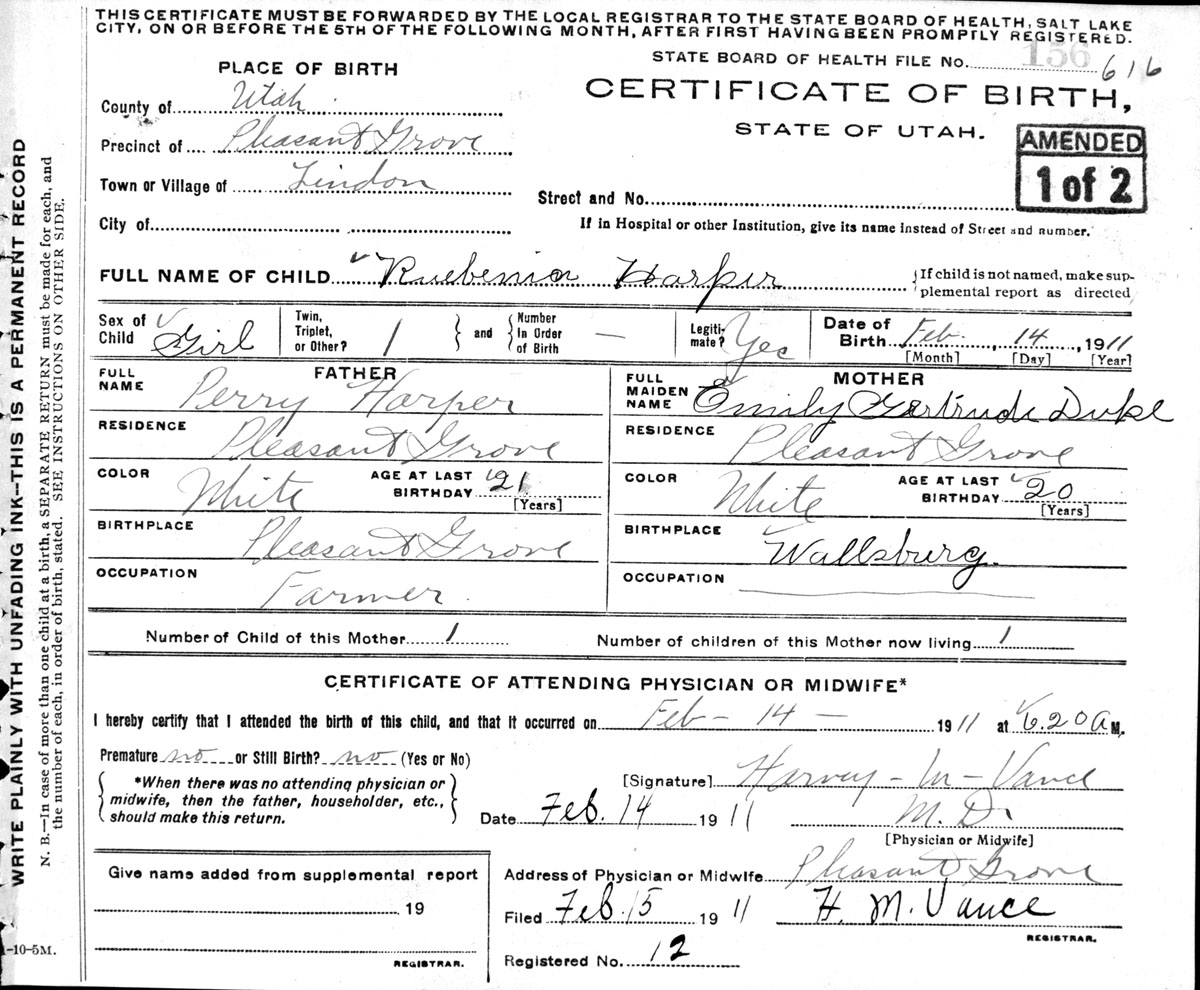 THIS CERTIFICATE MUST BE FORWARDED BY THE LOCAL REGISTRAR TO THE STATE BOARD OF HEALTH, SALT LAKE
CITY, ON OR BEFORE THE 5TH OF THE FOLLOWING MONTH, AFTER FIRST HAVING BEEN PROMPTLY REGISTERED.
STATE BOARD OF HEALTH FILE No. 156 616
PLACE OF BIRTH
CERTIFICATE OF BIRTH,
STATE OF UTAH.
AMENDED
1 of 2
County of Utah
Precinct of Pleasant Grove
Town or Village of Lindon
Street and No.
City of
If in Hospital or other Institution, give its name instead of Street and number.
FULL NAME OF CHILD Ruebenia Harper
{If child is not named, make sup-
plemental report as directed
Sex of Child Girl
Twin, Triplet, or Other? 1
and
Number In Order of Birth —
Legiti-mate? Yes
Date of Birth Feb. 14, 1911
[Month] [Day] [Year]
FATHER
FULL NAME Perry Harper
RESIDENCE Pleasant Grove
COLOR White
AGE AT LAST BIRTHDAY 21
[Years]
BIRTHPLACE Pleasant Grove
OCCUPATION Farmer
MOTHER
FULL MAIDEN NAME Emily Gertrude Duke
RESIDENCE Pleasant Grove
COLOR White
AGE AT LAST BIRTHDAY 20
[Years]
BIRTHPLACE Wallsburg.
OCCUPATION
Number of Child of this Mother 1
Number of children of this Mother now living 1
CERTIFICATE OF ATTENDING PHYSICIAN OR MIDWIFE*
I hereby certify that I attended the birth of this child, and that it occurred on Feb - 14 - 1911 at 6.20 A M.
Premature no or Still Birth? no (Yes or No)
{ *When there was no attending physician or
midwife, then the father, householder, etc.,
should make this return. }
[Signature] Harvey - M - Vance
Date Feb. 14 1911 M. D.
[Physician or Midwife]
Give name added from supplemental report
19
REGISTRAR.
Address of Physician or Midwife Pleasant Grove
Filed Feb. 15 1911 H. M. Vance
REGISTRAR.
Registered No. 12
WRITE PLAINLY WITH UNFADING INK—THIS IS A PERMANENT RECORD
N. B.—In case of more than one child at a birth, a SEPARATE RETURN must be made for each, and
the number of each, in order of birth, stated. SEE INSTRUCTIONS ON OTHER SIDE.
-10-5M.